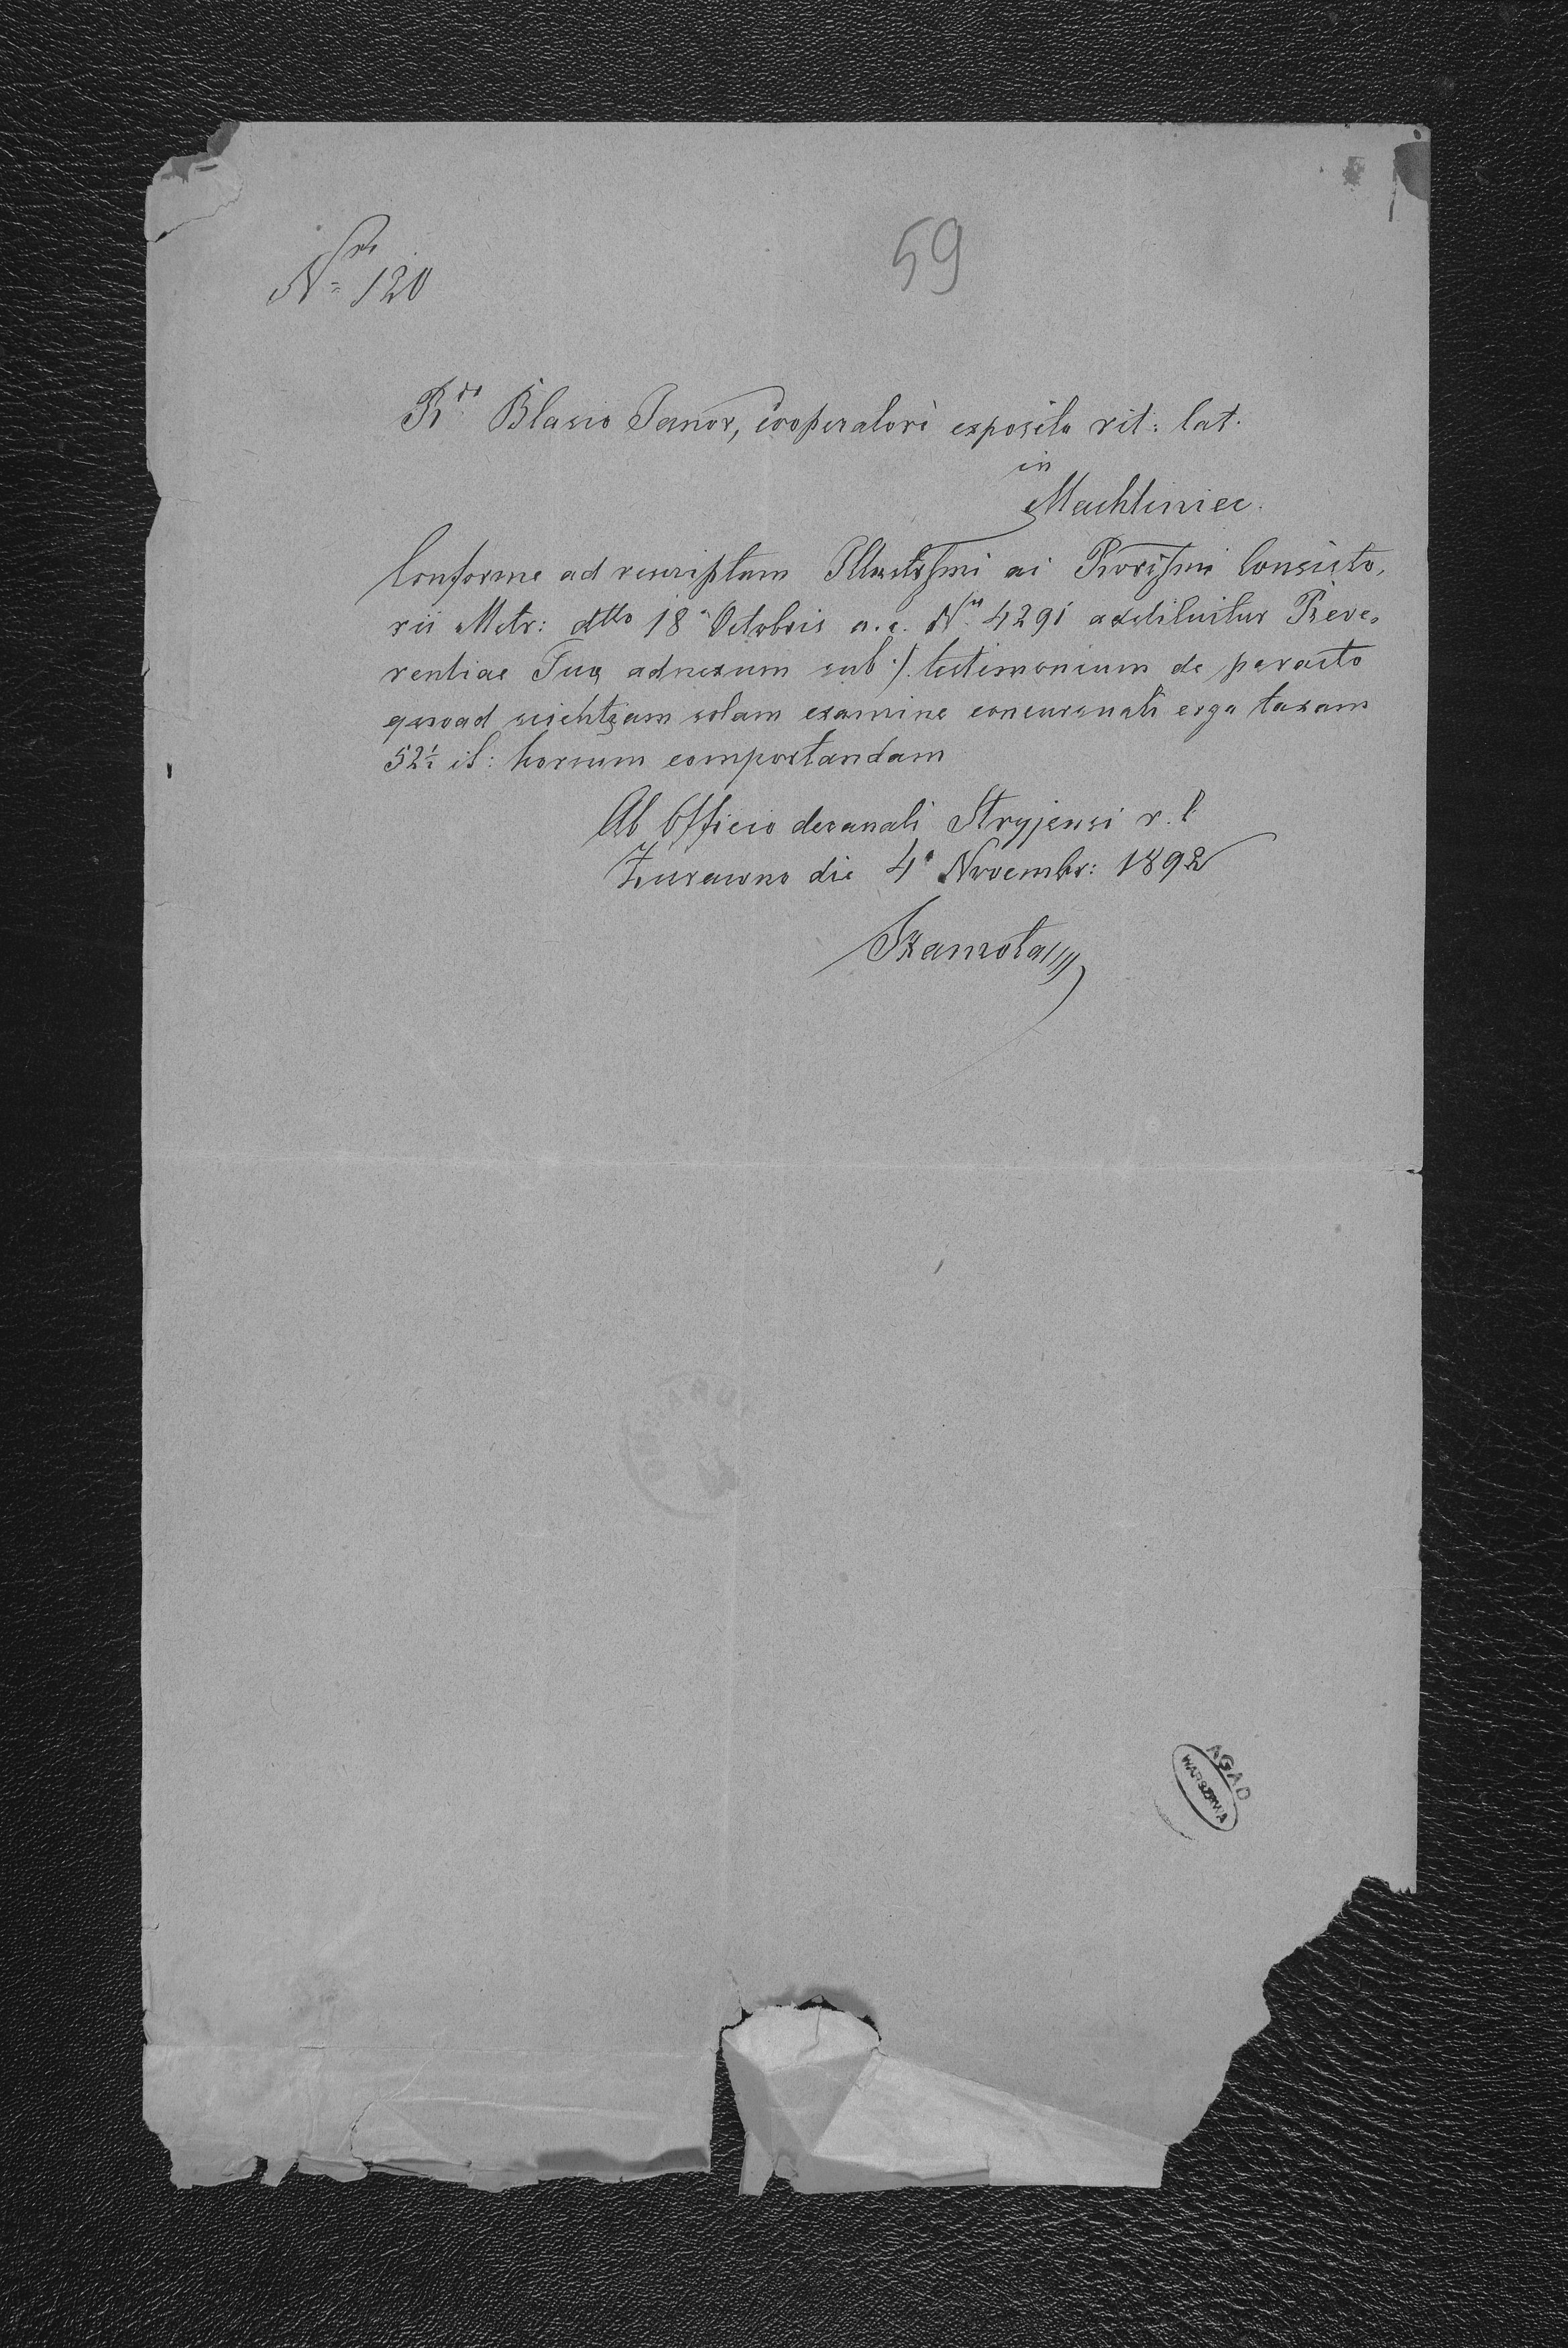 Nrs 120
59
Rdo Blasio Janor, cooperatori exposito rit: lat.
in
Machliniec.
Conforme ad rescriptum ac Consisto,
rii Metr: dtto 18 Octobris a. c. Nrs 4291 Reve,
rentiae Tuae adnexum sub ·/. testimonium de peracto
quoad solam examine concursuali erga taxam
52½ horum comportandam
Ab Officio decanali Stryjensi r. l.
Żurawno die 4 Novembr: 1892
Szamota
AGAD
WARSZAWA